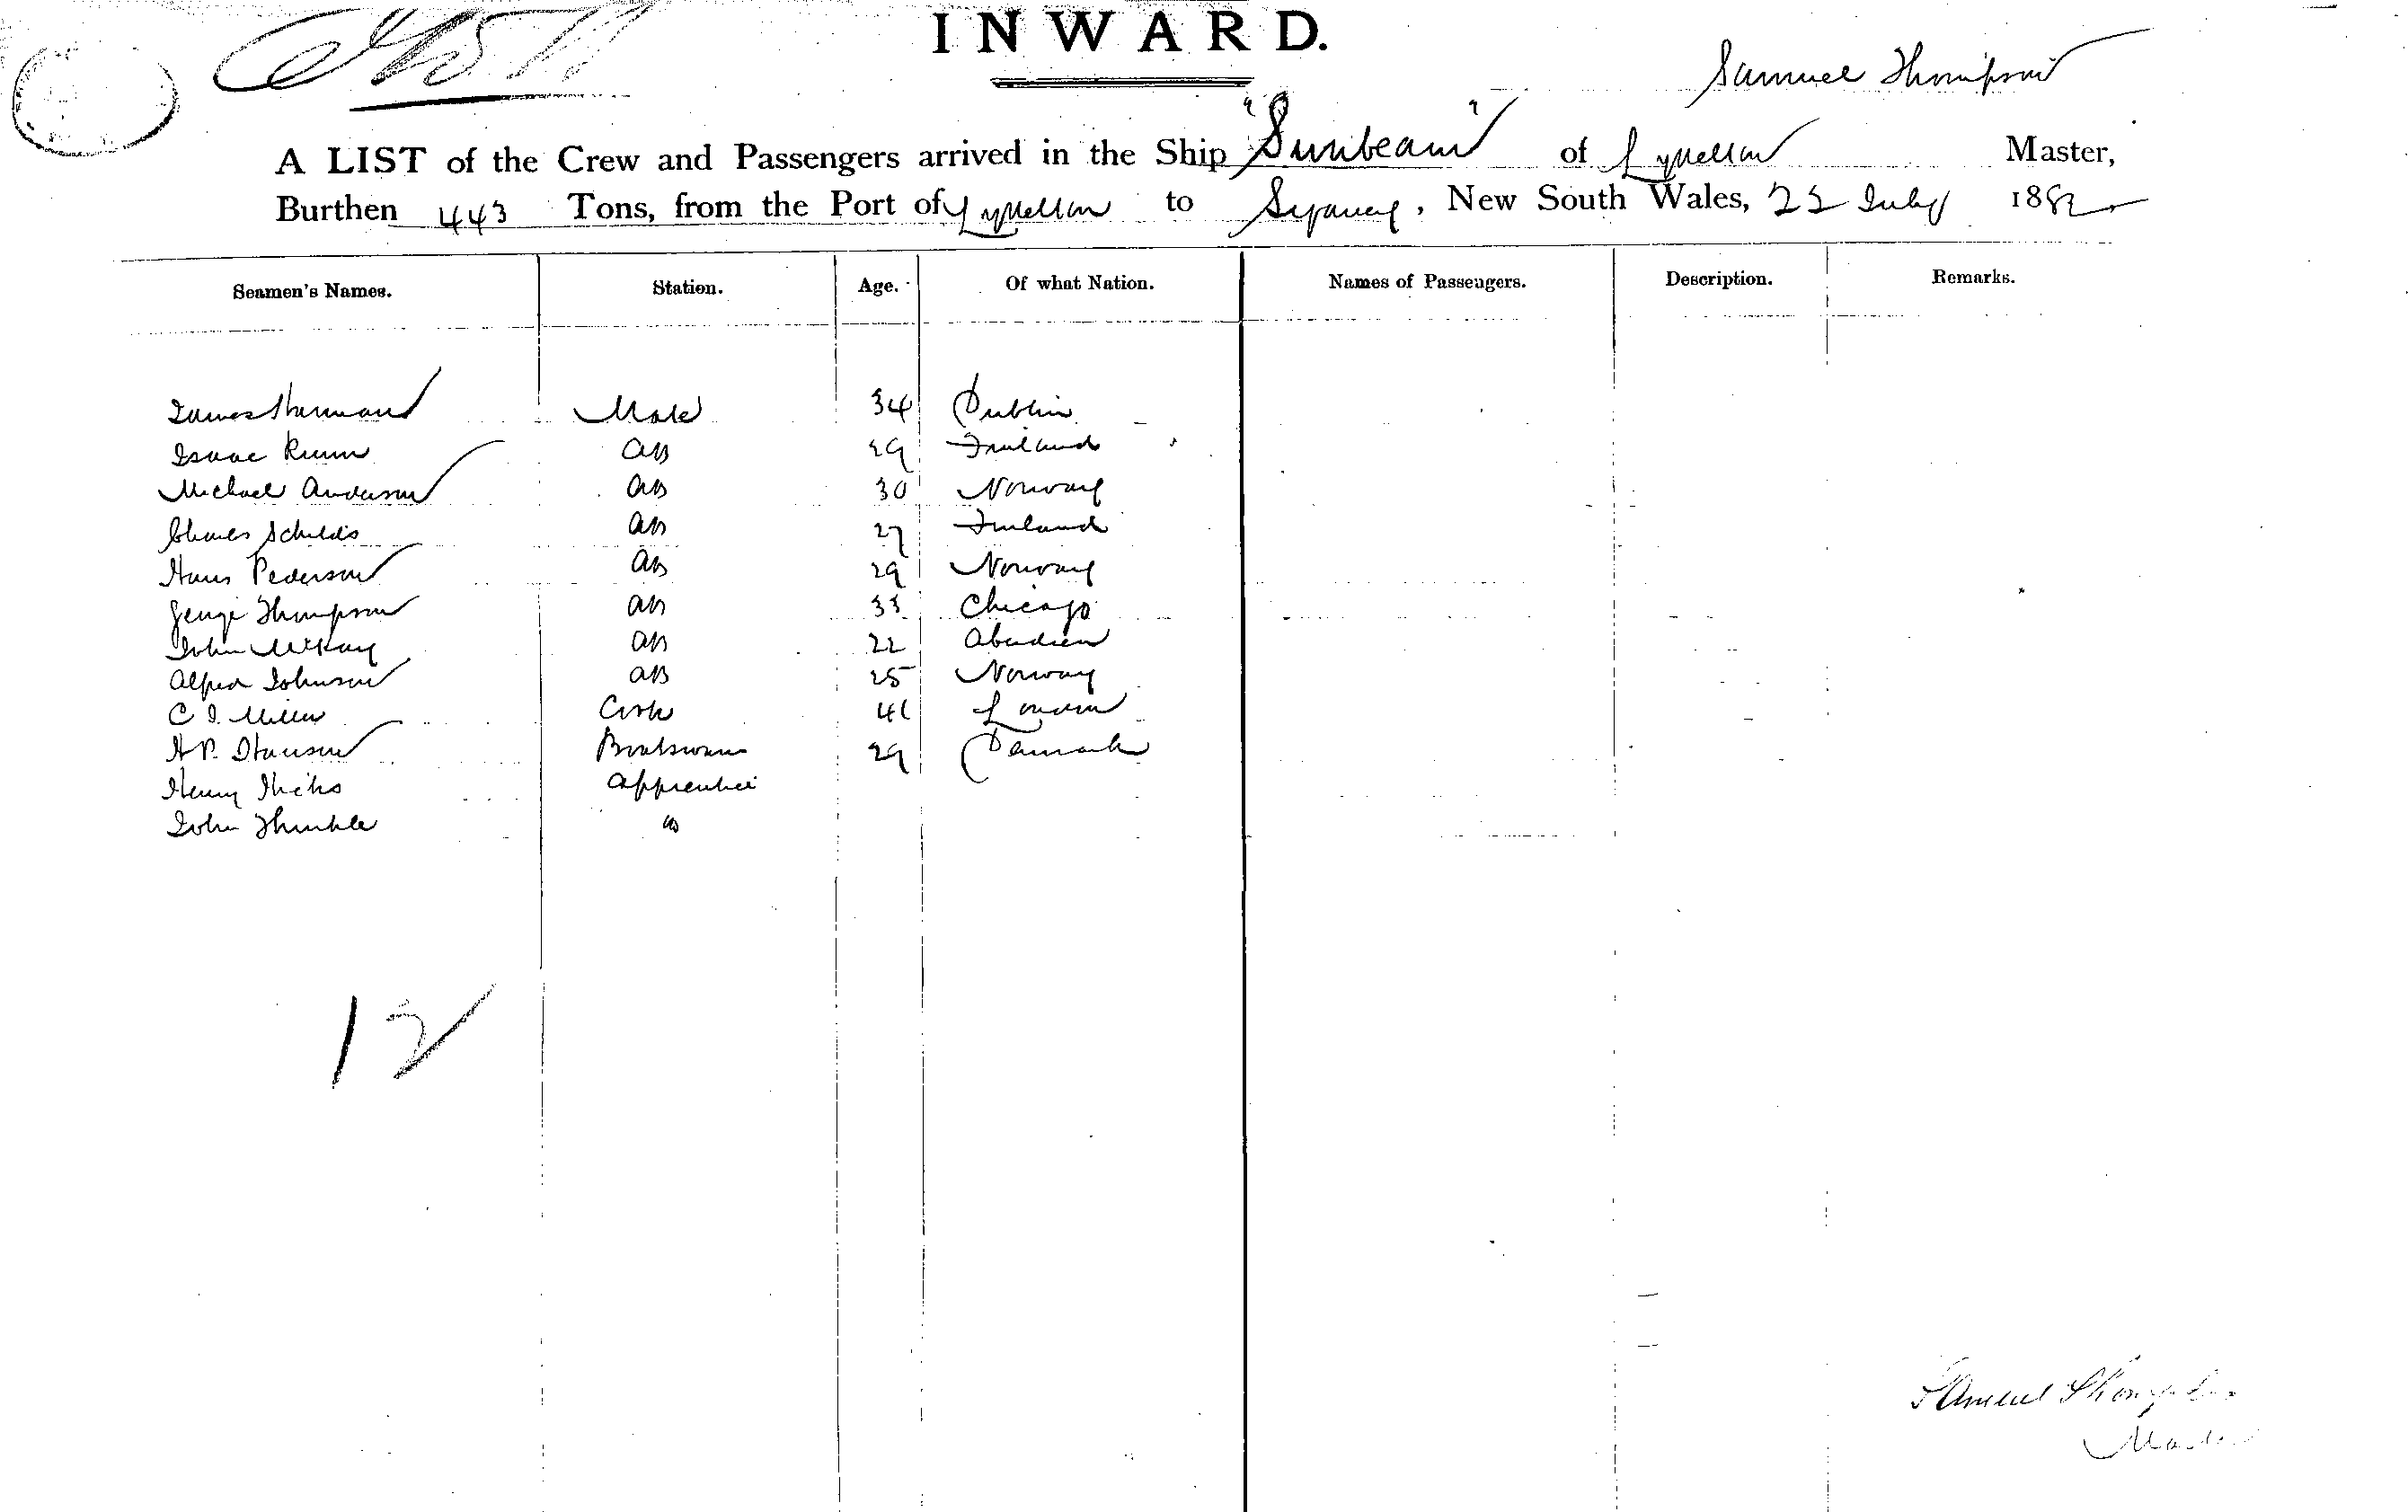 INWARD.
Samuel Thompson
A LIST of the Crew and Passengers arrived in the Ship "Sunbeam" of Lyttelton Master,
Burthen 443 Tons, from the Port of Lyttelton to Sydney, New South Wales, 22 July 1882
Seamen's Names. Station. Age. Of what Nation. Names of Passengers. Description. Remarks.
James Mate 34 Dublin
Isaac AB 29 Finland
Michael Anderson AB 30 Norway
Charles Schilds AB 27 Finland
Hans Pederson AB 29 Norway
George Thompson AB 33 Chicago
John McKay AB 22 Aberdeen
Alfred Johnson AB 25 Norway
C J. Miller Cook 41 London
H P. Hanson Boatswain 29 Denmark
Henry Hicks Apprentice
John Thimble "
12
Samuel Thompson
Master